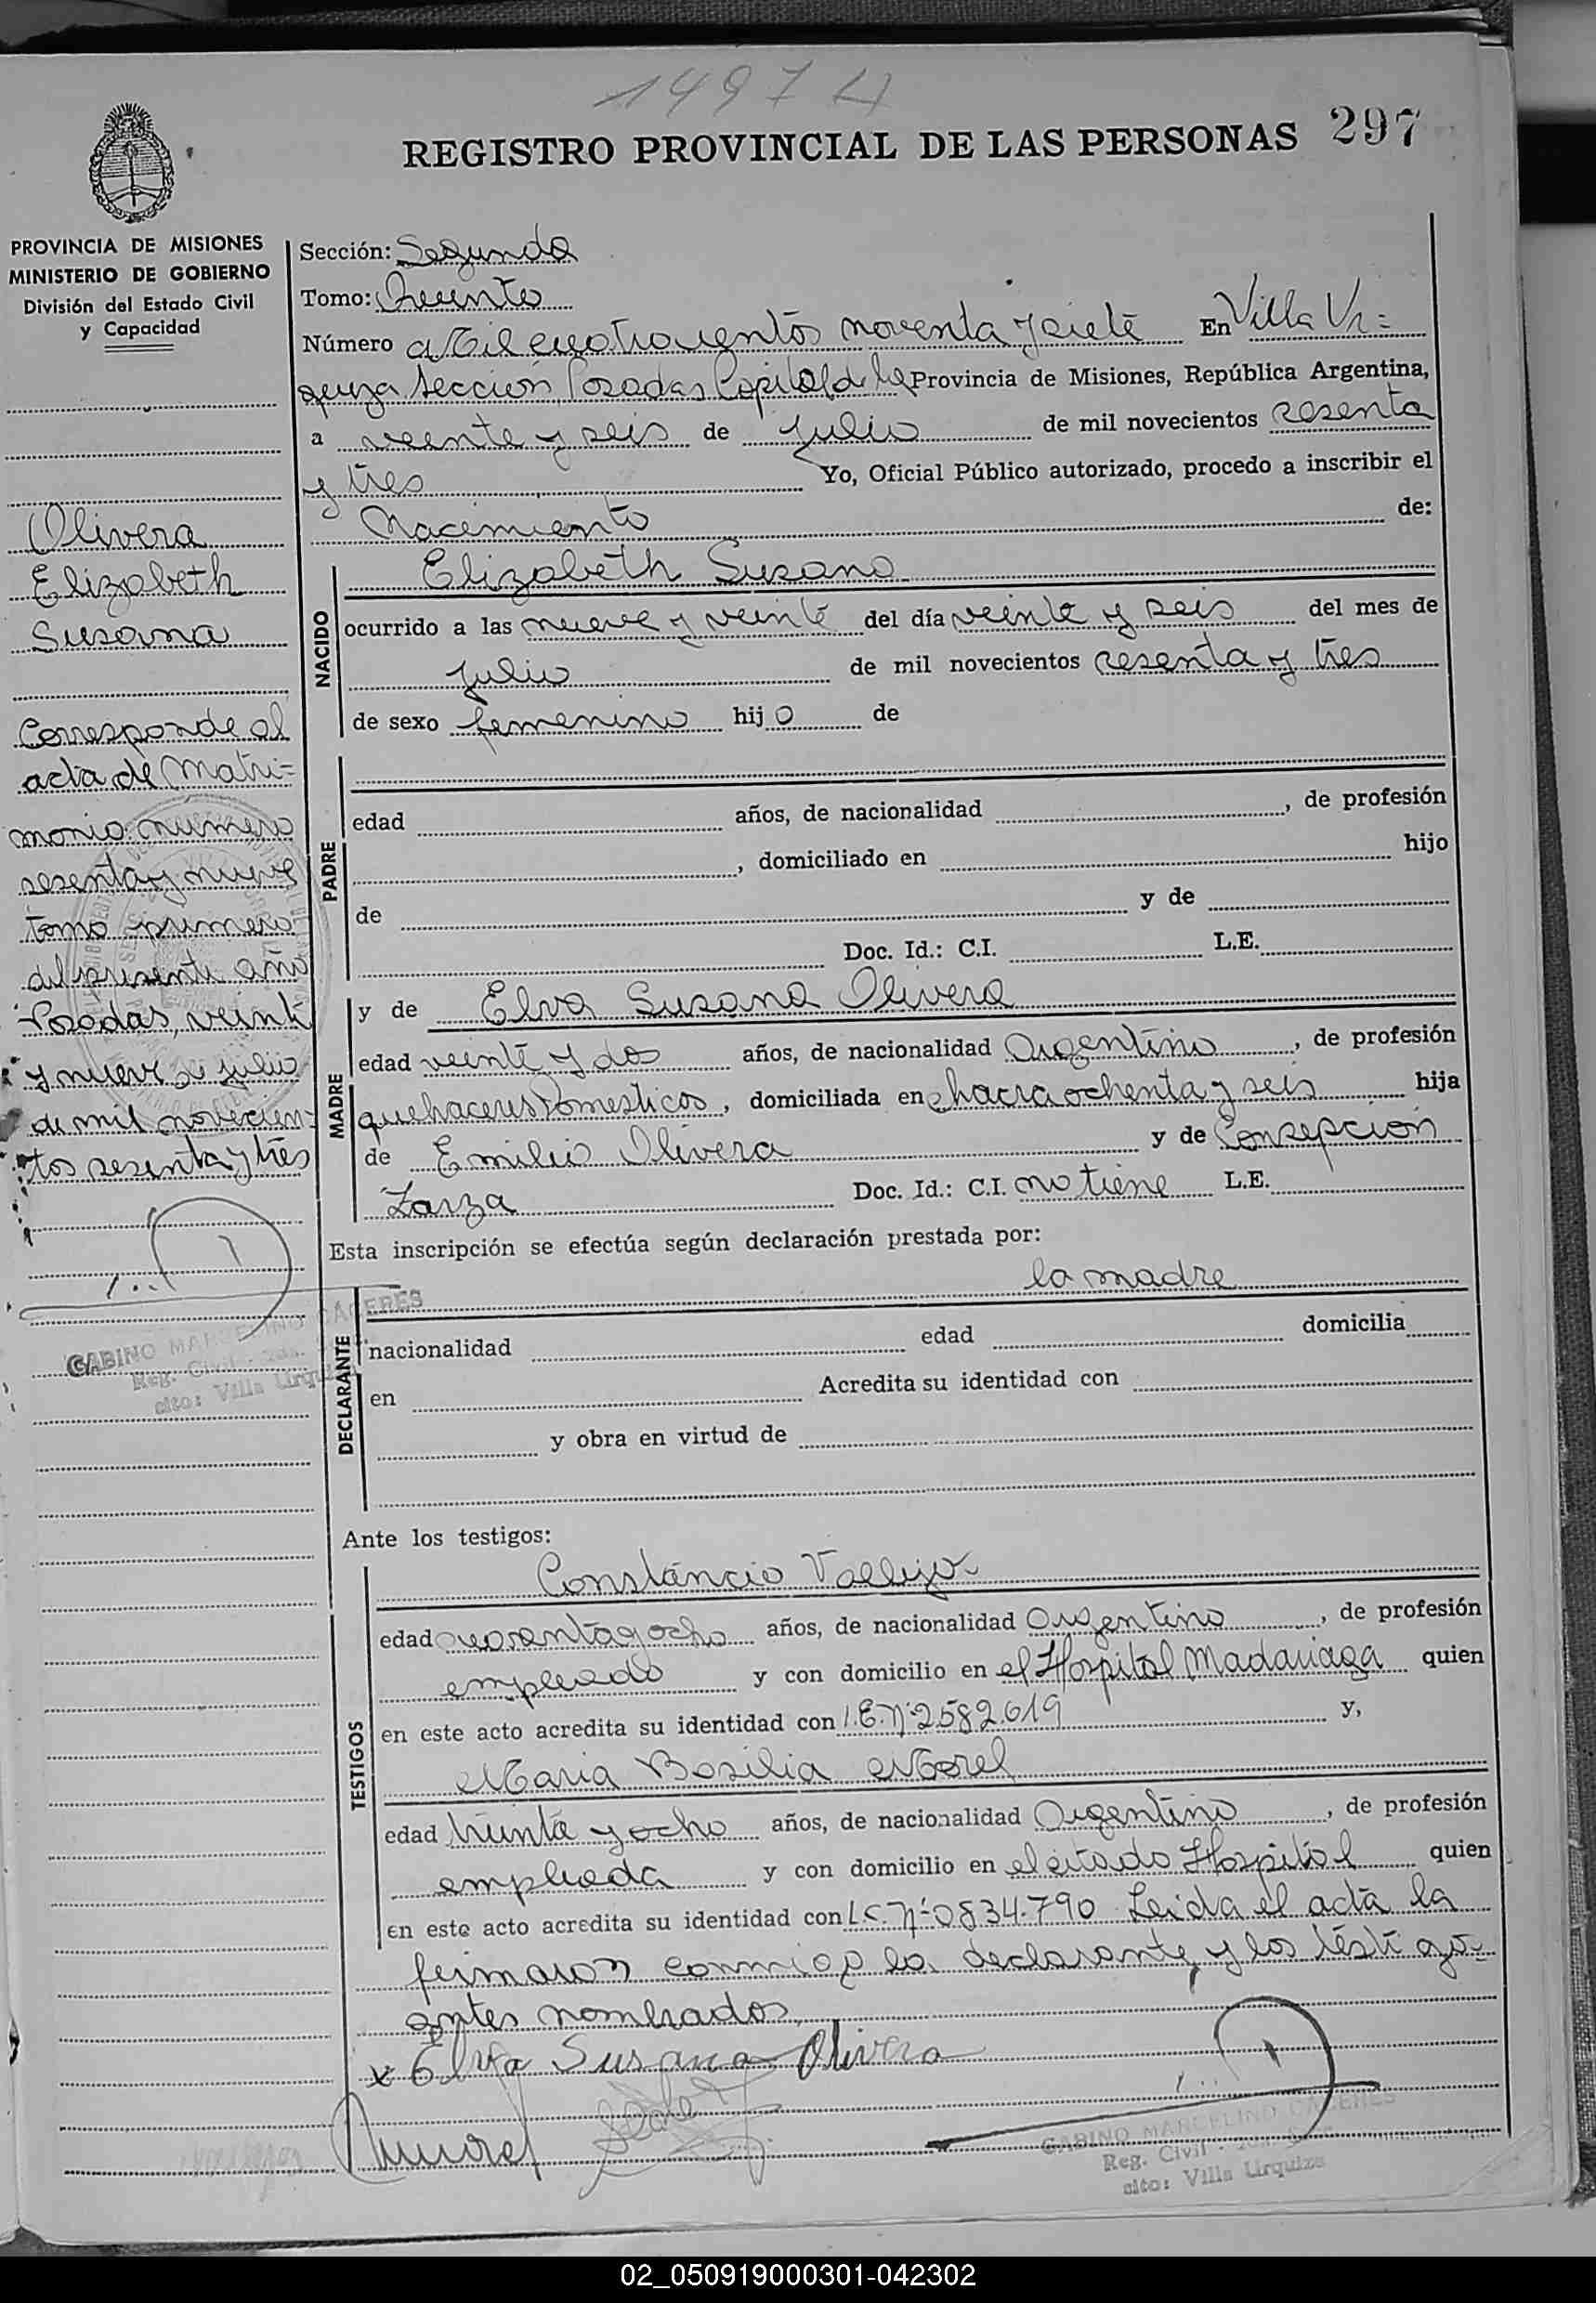 1497 H
REGISTRO PROVINCIAL DE LAS PERSONAS 297
PROVINCIA DE MISIONES
MINISTERIO DE GOBIERNO
División del Estado Civil
y Capacidad
Olivera
Elizabeth
Susana
Corresponde al
acta de matri=
monio numero
sesenta y nueve
tomo primero
del presente año
Posadas, veinti
y nueve de julio
de mil novecien=
tos sesenta y tres
GABINO MARCELINO CACERES
Reg. Civil - 2da.
sito: Villa Urquiza
Sección: Segunda
Tomo: Quinto
Número Mil cuatrocientos noventa y siete En Villa Ur=
quiza sección Posadas Capital de la Provincia de Misiones, República Argentina,
a veinte y seis de Julio de mil novecientos sesenta
y tres Yo, Oficial Público autorizado, procedo a inscribir el
Nacimiento de:
NACIDO
Elizabeth Susana
ocurrido a las nueve y veinte del día veinte y seis del mes de
Julio de mil novecientos sesenta y tres
de sexo femenino hijo de
PADRE
edad años, de nacionalidad , de profesión
, domiciliado en hijo
de y de
Doc. Id.: C.I. L.E.
MADRE
y de Elva Susana Olivera
edad veinte y dos años, de nacionalidad Argentina, de profesión
quehaceres Domesticos, domiciliada en chacra ochenta y seis hija
de Emilio Olivera y de Consepción
Zarza Doc. Id.: C.I. no tiene L.E.
Esta inscripción se efectúa según declaración prestada por:
DECLARANTE
la madre
nacionalidad edad domicilia
en Acredita su identidad con
y obra en virtud de
Ante los testigos:
TESTIGOS
Constancio Vallejo
edad cuarenta y ocho años, de nacionalidad Argentino, de profesión
empleado y con domicilio en el Hospital Madariaga quien
en este acto acredita su identidad con L.E. Nº 2.582.619 y,
Maria Basilia Morel
edad treinta y ocho años, de nacionalidad Argentina, de profesión
empleada y con domicilio en el citado Hospital quien
en este acto acredita su identidad con L.C. Nº 0834.790 Leida el acta la
firmaron conmigo la declarante y los testigo
antes nombrados
x Elva Susana Olivera
GABINO MARCELINO CACERES
Reg. Civil - 2da.
sito: Villa Urquiza
02_050919000301-042302